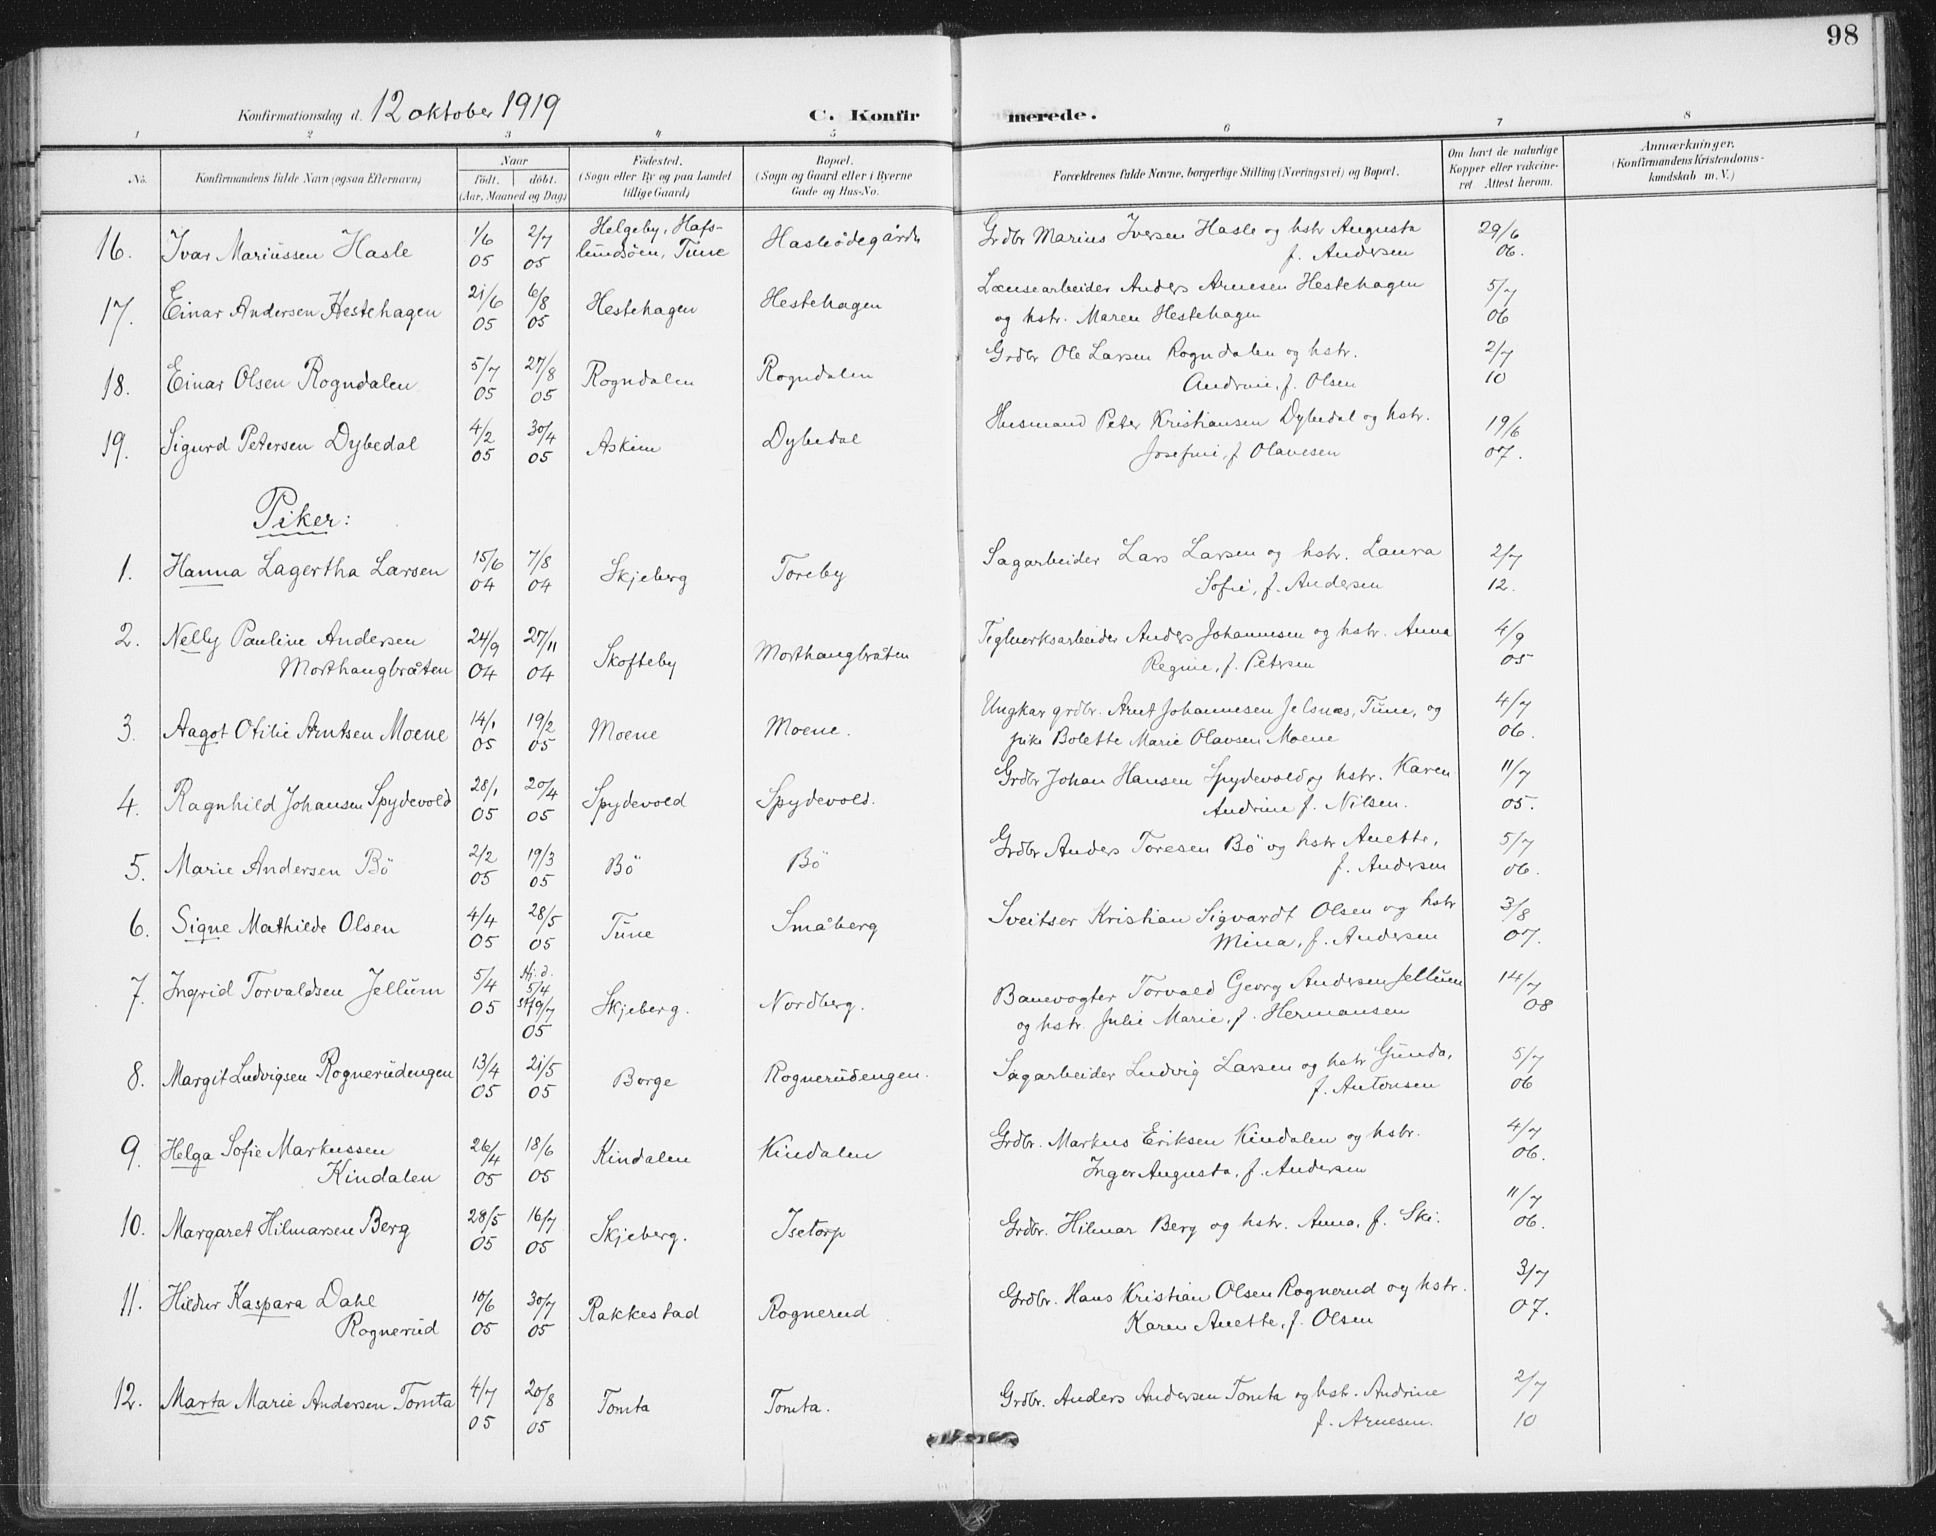 98
Konfirmationsdag d. 12 oktober 1919 C. Konfirmerede.
1 2 3 4 5 6 7 8
No. Konfirmandens fulde Navn (ogsaa Efternavn) Naar født. døbt. (Aar, Maaned og Dag) Fødested. (Sogn eller By og paa Landet tillige Gaard) Bopæl. (Sogn og Gaard eller i Byerne Gade og Hus-No. Forældrenes fulde Navne, borgerlige Stilling (Næringsvei) og Bopæl. Om havt de naturlige Kopper eller vaccineret Attest herom. Anmærkninger. (Konfirmandens Kristendomskundskab m. V.)
16. Ivar Mariussen Hasle 1/6 05 2/7 05 Helgeby, Hafslundsöen, Tune Hasleödegård Grdbr Marius Iversen Hasle og hstr Augusta f. Andersen 29/6 06.
17. Einar Andersen Hestehagen 21/6 05 6/8 05 Hestehagen Hestehagen Lænsearbeider Anders Arnesen Hestehagen og hstr. Maren Hestehagen 5/7 06
18. Einar Olsen Rogndalen 5/7 05 27/8 05 Rogndalen Rogndalen Grdbr Ole Larsen Rogndalen og hstr. Andrine, f. Olsen 2/7 10
19. Sigurd Petersen Dybedal 4/2 05 30/4 05 Askim Dybedal Husmand Peter Kristiansen Dybedal og hstr. Josefine, f Olavesen 19/6 07.
Piker:
1. Hanna Lagertha Larsen 15/6 04 7/8 04 Skjeberg Toreby Sagarbeider Lars Larsen og hstr. Laura Sofie, f. Andersen 2/7 12.
2. Nelly Pauline Andersen Morthaugbråten 24/9 04 27/11 04 Skofteby Morthaugbråten Teglverksarbeider Anders Johannesen og hstr. Anna Regine, f. Petersen 4/9 05
3. Aagot Otilie Arntsen Moene 14/1 05 19/2 05 Moene Moene. Ungkar grdbr. Arnt Johannesen Jelsnæs, Tune, og pike Bolette Marie Olavsen Moene 4/7 06.
4. Ragnhild Johansen Spydevold 28/1 05 20/4 05 Spydevold Spydevold. Grdbr Johan Hansen Spydevold og hstr. Karen Andrine f. Nilsen. 11/7 05.
5. Marie Andersen Bö 2/2 05 19/3 05 Bö Bö Grdbr Anders Toresen Bö og hstr Anette, f. Andersen 5/7 06.
6. Signe Mathilde Olsen 4/4 05 28/5 05 Tune Småberg Sveitser Kristian Sigvardt Olsen og hstr Mina, f. Andersen 3/8 07.
7. Ingrid Torvaldsen Jellum 5/4 05 Hj. d. 5/4 st. 9/7 05 Skjeberg. Nordberg. Banevogter Torvald Georg Andersen Jellum og hstr Julie Marie, f. Hermansen 14/7 08
8. Margit Ludvigsen Rognerudengen 13/4 05 21/5 05 Borge Rognerudengen. Sagarbeider Ludvig Larsen og hstr Gunda, f. Antonsen 5/7 06
9. Helga Sofie Markussen Kindalen 26/4 05 18/6 05 Kindalen Kindalen Grdbr. Markus Eriksen Kindalen og hstr. Inger Augusta, f. Andersen 4/7 06.
10. Margaret Hilmarsen Berg 28/5 05 16/7 05 Skjeberg. Isetorp Grdbr. Hilmar Berg og hstr. Anna, f. Ski. 11/7 06.
11. Hildur Kaspara Dahl Rognerud 10/6 05 30/7 05 Rakkestad Rognerud Grdbr. Hans Kristian Olsen Rognerud og hstr. Karen Anette, f. Olsen 3/7 07.
12. Marta Marie Andersen Tomta 4/7 05 20/8 05 Tomta Tomta. Grdbr. Anders Andersen Tomta og hstr. Andrine f. Arnesen. 2/7 10